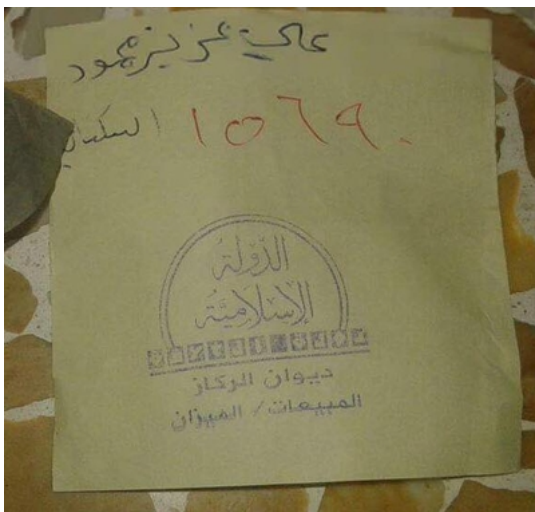 علي عزيز حمود
السكدا ١٥٦٩٠
الدولة
الإسلامية
ديوان الركاز
المبيعات / الميزان